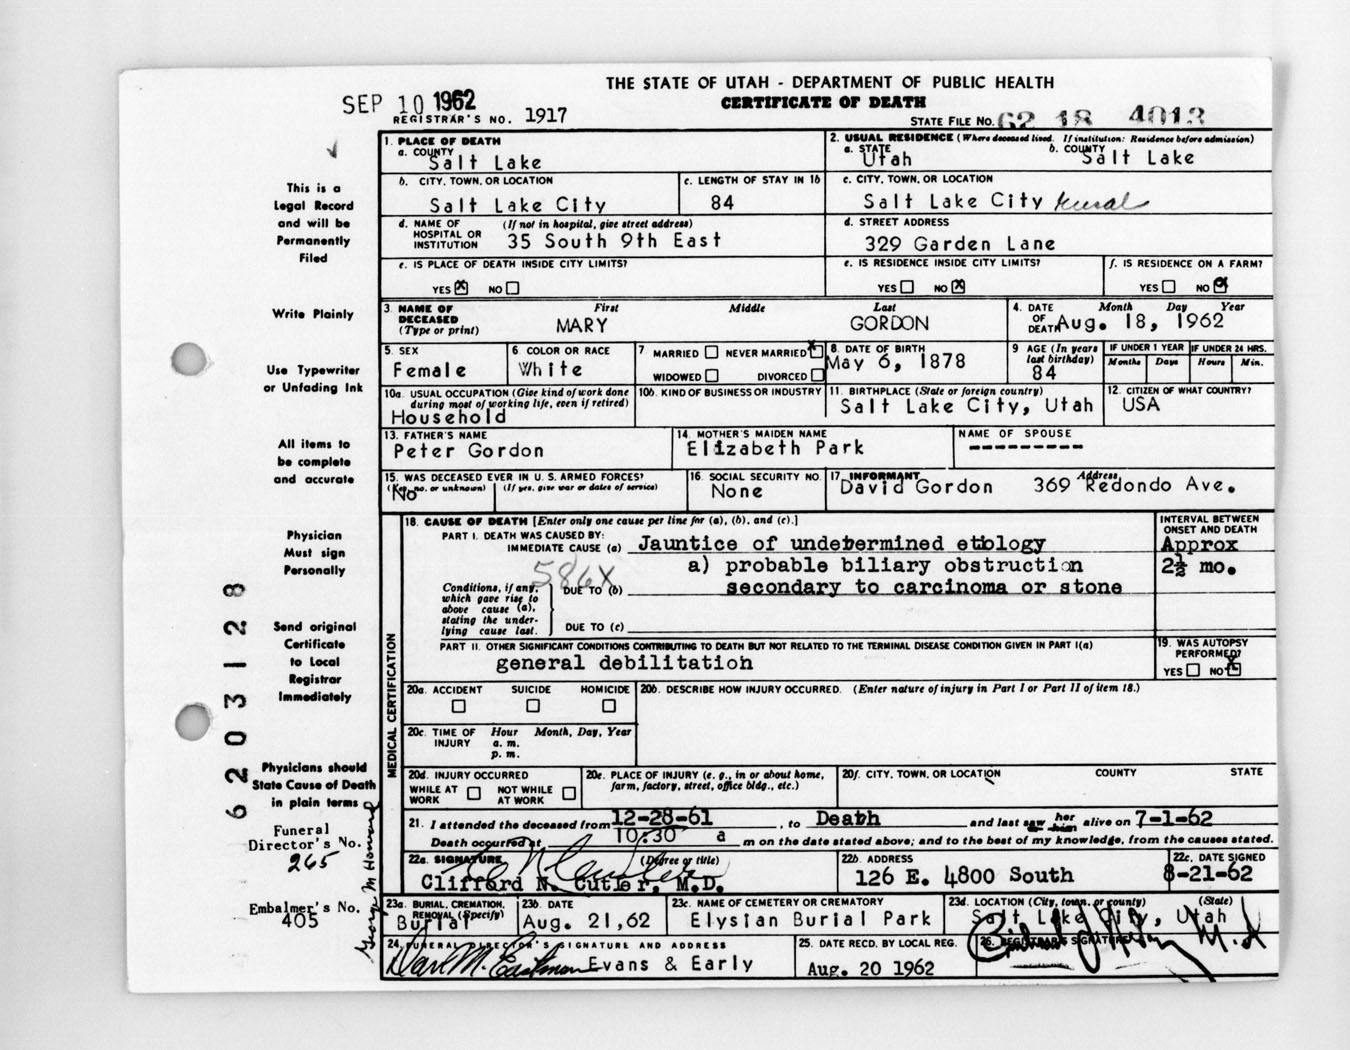 THE STATE OF UTAH - DEPARTMENT OF PUBLIC HEALTH
SEP 10 1962 CERTIFICATE OF DEATH
REGISTRAR'S NO. 1917 STATE FILE NO. 62 18 4013
This is a Legal Record and will be Permanently Filed
Write Plainly
Use Typewriter or Unfading Ink
All items to be complete and accurate
Physician Must sign Personally
Send original Certificate to Local Registrar Immediately
Physicians should State Cause of Death in plain terms
Funeral Director's No. 265
Embalmer's No. 405
George M Howard
6203128
1. PLACE OF DEATH
a. COUNTY Salt Lake
2. USUAL RESIDENCE (Where deceased lived. If institution: Residence before admission)
a. STATE Utah b. COUNTY Salt Lake
b. CITY, TOWN, OR LOCATION Salt Lake City
c. LENGTH OF STAY IN 1b 84
c. CITY, TOWN, OR LOCATION Salt Lake City Rural
d. NAME OF HOSPITAL OR INSTITUTION (If not in hospital, give street address) 35 South 9th East
d. STREET ADDRESS 329 Garden Lane
e. IS PLACE OF DEATH INSIDE CITY LIMITS? YES X NO
e. IS RESIDENCE INSIDE CITY LIMITS? YES NO X
f. IS RESIDENCE ON A FARM? YES NO X
3. NAME OF DECEASED (Type or print) First Middle Last
MARY GORDON
4. DATE OF DEATH Month Day Year
Aug. 18, 1962
5. SEX Female
6. COLOR OR RACE White
7 MARRIED NEVER MARRIED X WIDOWED DIVORCED
8. DATE OF BIRTH May 6, 1878
9 AGE (In years last birthday) 84
IF UNDER 1 YEAR Months Days
IF UNDER 24 HRS. Hours Min.
10a. USUAL OCCUPATION (Give kind of work done during most of working life, even if retired) Household
10b. KIND OF BUSINESS OR INDUSTRY
11. BIRTHPLACE (State or foreign country) Salt Lake City, Utah
12. CITIZEN OF WHAT COUNTRY? USA
13. FATHER'S NAME Peter Gordon
14. MOTHER'S MAIDEN NAME Elizabeth Park
NAME OF SPOUSE ---------
15. WAS DECEASED EVER IN U. S. ARMED FORCES? (Yes, no, or unknown) (If yes, give war or dates of service) No
16. SOCIAL SECURITY NO. None
17. INFORMANT Address
David Gordon 369 Redondo Ave.
MEDICAL CERTIFICATION
18. CAUSE OF DEATH [Enter only one cause per line for (a), (b), and (c).]
INTERVAL BETWEEN ONSET AND DEATH
PART I. DEATH WAS CAUSED BY:
IMMEDIATE CAUSE (a) Jauntice of undetermined etiology Approx
a) probable biliary obstruction 2½ mo.
586X
Conditions, if any, which gave rise to above cause (a), stating the underlying cause last.
DUE TO (b) secondary to carcinoma or stone
DUE TO (c)
PART II. OTHER SIGNIFICANT CONDITIONS CONTRIBUTING TO DEATH BUT NOT RELATED TO THE TERMINAL DISEASE CONDITION GIVEN IN PART I(a)
general debilitation
19. WAS AUTOPSY PERFORMED? YES NO X
20a. ACCIDENT SUICIDE HOMICIDE
20b. DESCRIBE HOW INJURY OCCURRED. (Enter nature of injury in Part I or Part II of item 18.)
20c. TIME OF INJURY Hour Month, Day, Year
a. m.
p. m.
20d. INJURY OCCURRED
WHILE AT WORK NOT WHILE AT WORK
20e. PLACE OF INJURY (e. g., in or about home, farm, factory, street, office bldg., etc.)
20f. CITY, TOWN, OR LOCATION COUNTY STATE
21. I attended the deceased from 12-28-61, to Death and last saw her him alive on 7-1-62
Death occurred at 10:30 a m on the date stated above; and to the best of my knowledge, from the causes stated.
22a. SIGNATURE (Degree or title)
Clifford N. Cutler, M.D.
22b. ADDRESS 126 E. 4800 South
22c. DATE SIGNED 8-21-62
23a. BURIAL, CREMATION, REMOVAL (Specify) Burial
23b. DATE Aug. 21,62
23c. NAME OF CEMETERY OR CREMATORY Elysian Burial Park
23d. LOCATION (City, town, or county) (State) Salt Lake City, Utah
24. FUNERAL DIRECTOR'S SIGNATURE AND ADDRESS
Evans & Early
25. DATE RECD. BY LOCAL REG. Aug. 20 1962
26. REGISTRAR'S SIGNATURE